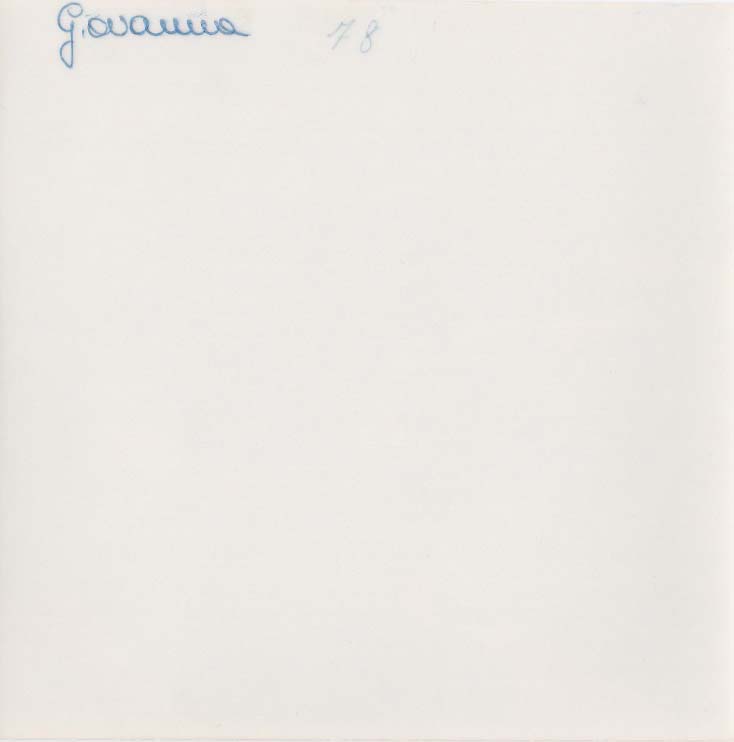 Giovanna 78